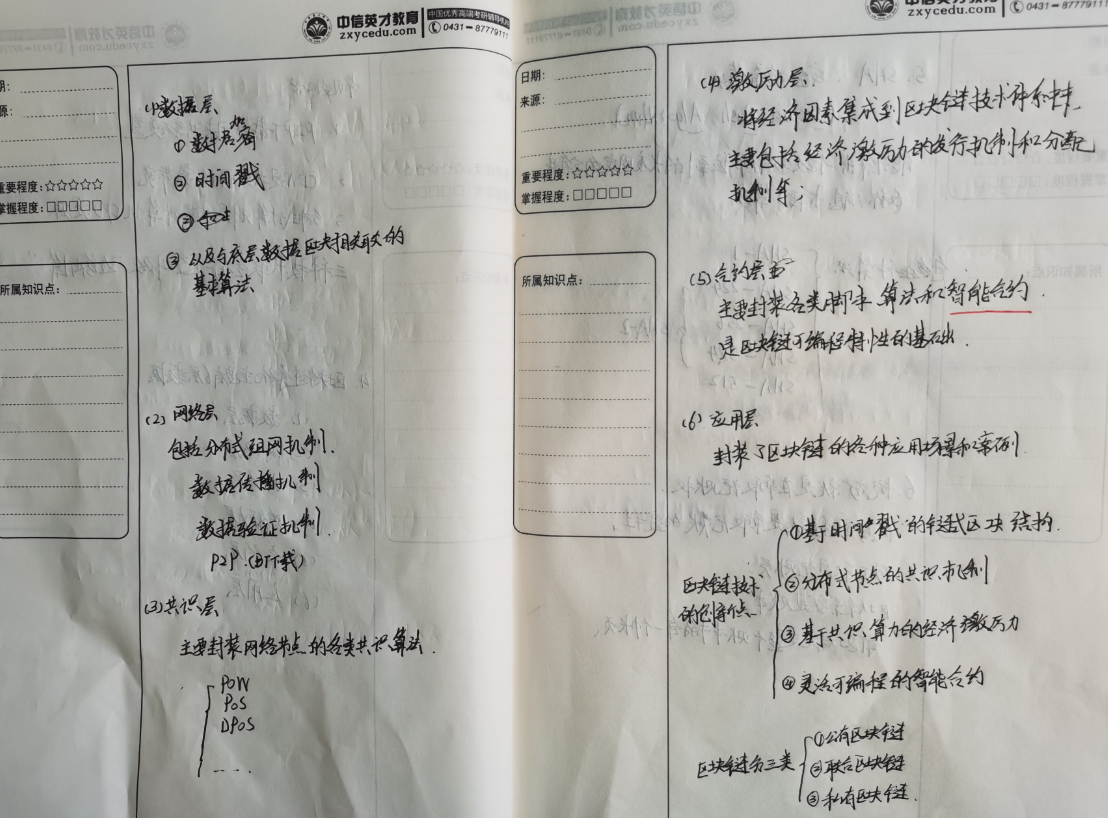 中信英才教育
zxycedu.com
中国优秀高端考研辅导机构
0431-87779111
期:
源:
重要程度:☆☆☆☆☆
掌握程度:□□□□□
所属知识点:
(1)数据层
① 数据加密
② 时间戳
③ 以及与底层数据区块相关联的
基本算法
(2) 网络层
包括分布式组网机制.
数据传播机制
数据验证机制.
P2P.(BT下载)
(3)共识层
主要封装网络节点的各类共识算法.
POW
POS
DPOS
....
中信英才教育
zxycedu.com
0431-87779111
日期:
来源:
重要程度:☆☆☆☆☆
掌握程度:□□□□□
所属知识点:
(4) 激励层.
将经济因素集成到区块链技术体系中,
主要包括经济激励的发行机制和分配
机制等;
(5)合约层
主要封装各类脚本 算法和智能合约.
是区块链可编程特性的基础.
(6) 应用层
封装了区块链的各种应用场景和案例.
区块链技术
的创新点
①基于时间戳的链式区块结构.
②分布式节点的共识机制
③基于共识算力的经济激励
④灵活可编程的智能合约
区块链分三类
①公有区块链
②联合区块链
③私有区块链.